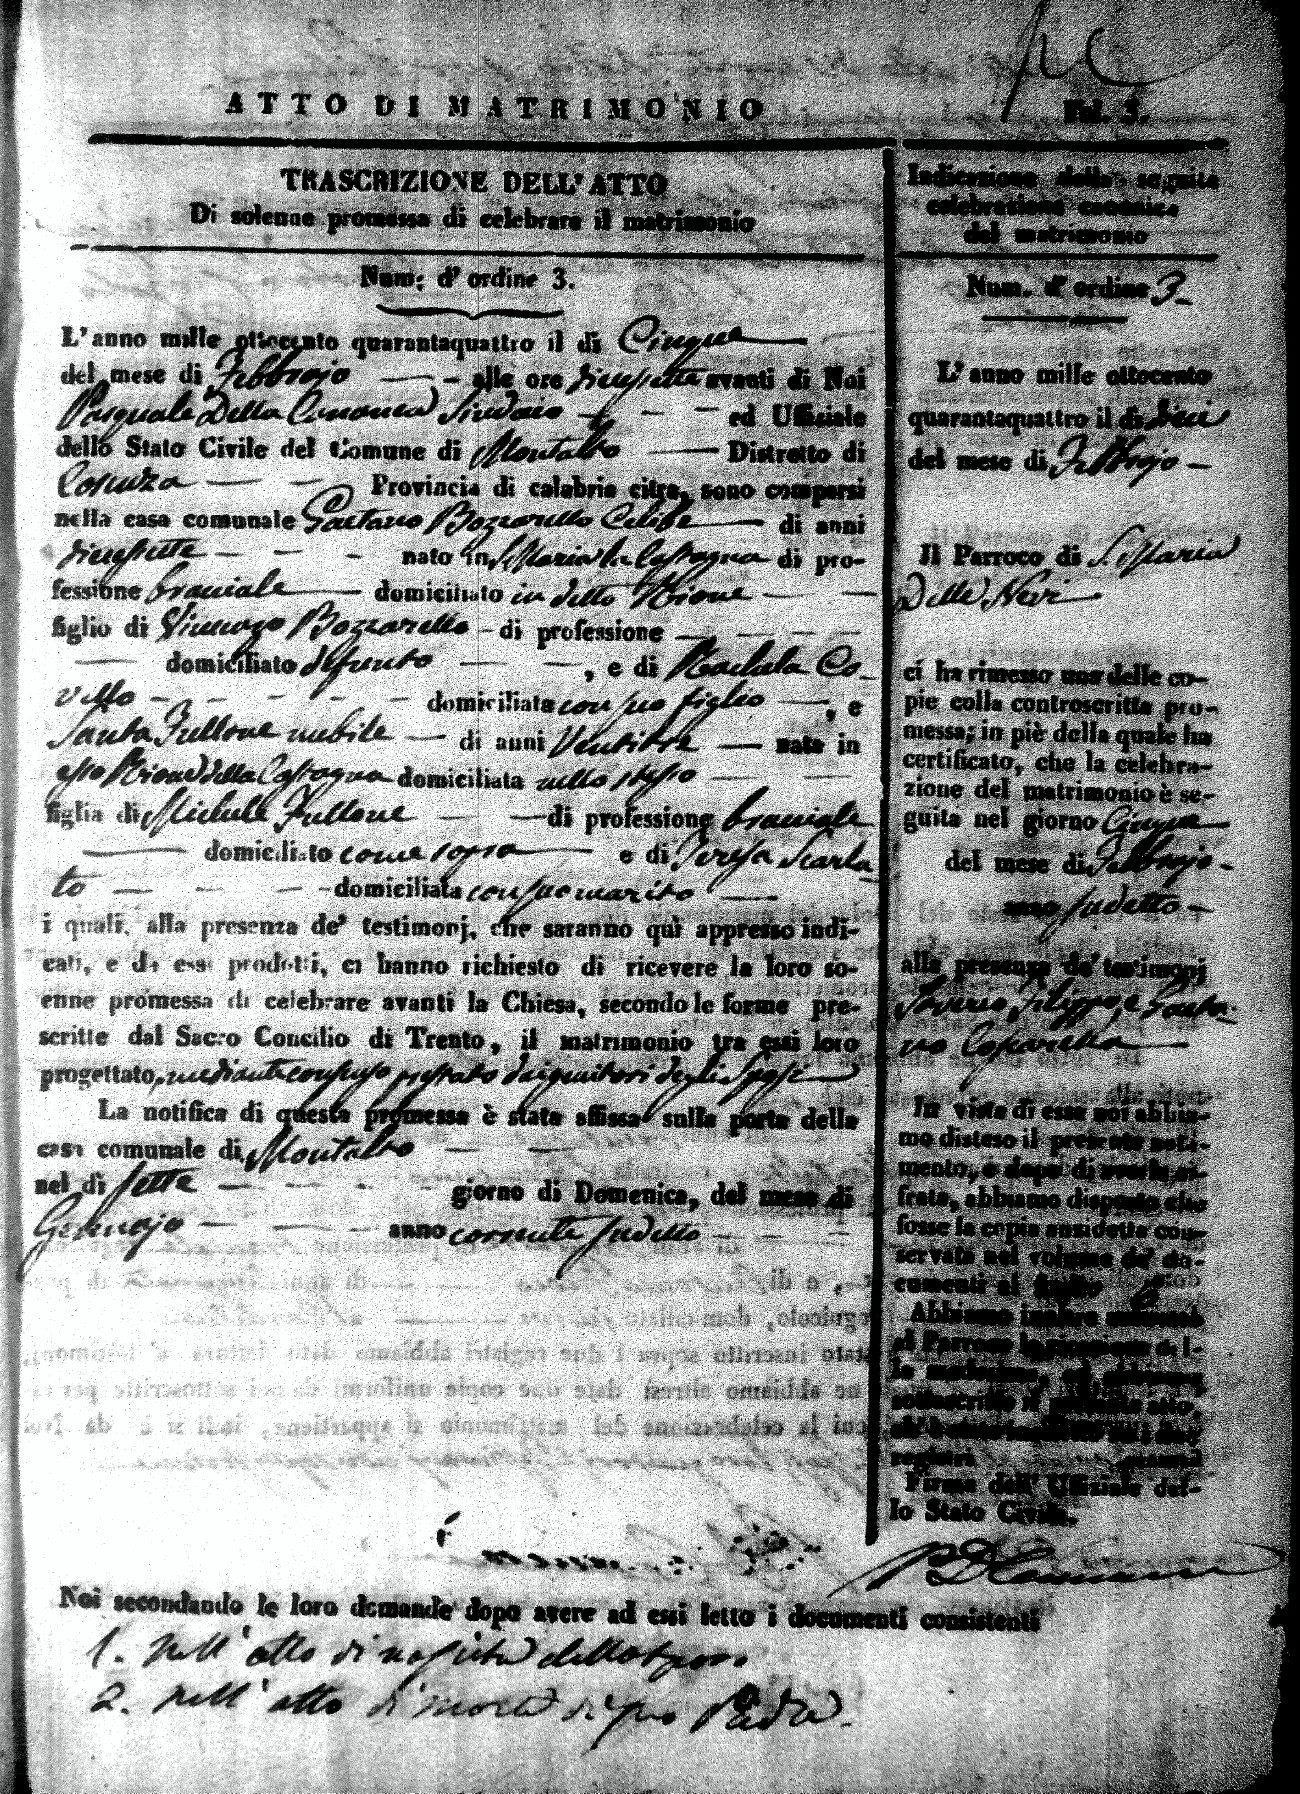 ATTO DI MATRIMONIO
Fol. 3.
TRASCRIZIONE DELL'ATTO
Di solenne promessa di celebrare il matrimonio
Num: d'ordine 3.
L'anno mille ottocento quarantaquattro il di Cinque
del mese di Febbrajo — alle ore diecisette avanti di Noi
Pasquale Della Canonea Sindaco — ed Uffiziale
dello Stato Civile del Comune di Montalto — Distretto di
Cosenza — Provincia di calabria citra, sono comparsi
nella casa comunale Gaetano Bozzarello Celibe — di anni
diecisette — nato in S. Maria la Castagna di pro-
fessione bracciale — domiciliato in detto Rione —
figlio di Vincenzo Bozzarello - di professione —
— domiciliato defunto — , e di Rachela Co-
vello — domiciliata con suo figlio —, e
Santa Fullone nubile — di anni Ventitre — nata in
esso Rione della Castagna domiciliata nello stesso —
figlia di Michele Fullone — di professione bracciale
— domiciliato come sopra — e di Teresa Scarla
to — domiciliata con suo marito —
i quali, alla presenza de' testimonj, che saranno quì appresso indi-
cati, e da essi prodotti, ci hanno richiesto di ricevere la loro so-
enne promessa di celebrare avanti la Chiesa, secondo le forme pre-
scritte dal Sacro Concilio di Trento, il matrimonio tra essi loro
progettato, mediante consenso prestato dai genitori degli Sposi —
La notifica di questa promessa è stata affissa sulla porta della
casa comunale di Montalto —
nel dì sette — giorno di Domenica, del mese di
Gennajo — anno corrente sudetto —
Noi secondando le loro demande dopo avere ad essi letto i documenti consistenti
1. Nell'atto di nascita dello sposo.
2. nell'atto di morte di suo Padre.
Indicazione della seguita
celebrazione canonica
del matrimonio
Num. d'ordine 3
L'anno mille ottocento
quarantaquattro il di dieci
del mese di Febbrajo —
Il Parroco di S. Maria
Delle Nevi —
ci ha rimesso una delle co-
pie colla controscritta pro-
messa; in piè della quale ha
certificato, che la celebra-
zione del matrimonio è se-
guita nel giorno Cinque
del mese di Febbrajo -
anno sudetto —
alla presenza de' testimonj
Saverio Filippo, e Gaeta-
no Caparella —
In vista di esse noi abbia-
mo disteso il presente noti-
mento, e dopo di averla ci-
frata, abbiamo disposto che
fosse la copia ansidetta con-
servata nel volume de' do-
cumenti al foglio 6
Abbiamo inoltre accusato
al Parroco la ricezione del-
la medesima, ed abbiamo
sottoscritto il presente atto,
registri
Firma dell'Uffiziale del-
lo Stato Civile.